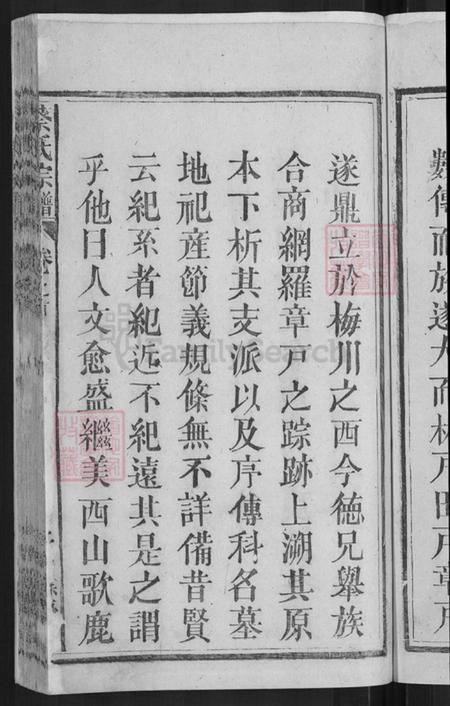 數傳而族遂大而林戶田戶章戶
遂鼎立於梅川之西今德兄舉族
合商網羅章戶之踪跡上溯其原
本下析其支派以及序傳科名墓
地祀産節義規條無不詳備昔賢
云紀系者紀近不紀遠其是之謂
乎他日人文愈盛繼美西山歌鹿
氏宗譜
卷之首
FamilySearch